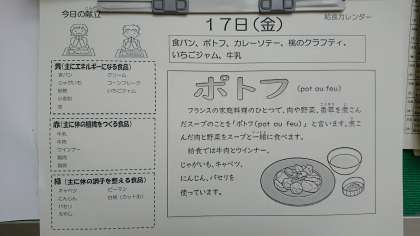 今日の献立
給食カレンダー
17日(金)
食パン、ポトフ、カレーソテー、桃のクラフティ、
いちごジャム、牛乳
黄(主にエネルギーになる食品)
食パン
クリーム
じゃがいも
コーンフレーク
砂糖
いちごジャム
小麦粉
赤(主に体の組織をつくる食品)
牛乳
牛肉
ウインナー
鶏肉
緑(主に体の調子を整える食品)
キャベツ
ピーマン
にんじん
パセリ
もやし
ポトフ(pot au feu)
フランスの家庭料理のひとつで、肉や野菜、香草を煮こん
だスープのことを「ポトフ(pot au feu)」と言います。煮こ
んだ肉と野菜をスープと一緒に食べます。
給食では牛肉とウインナー、
じゃがいも、キャベツ、
にんじん、パセリを
使っています。